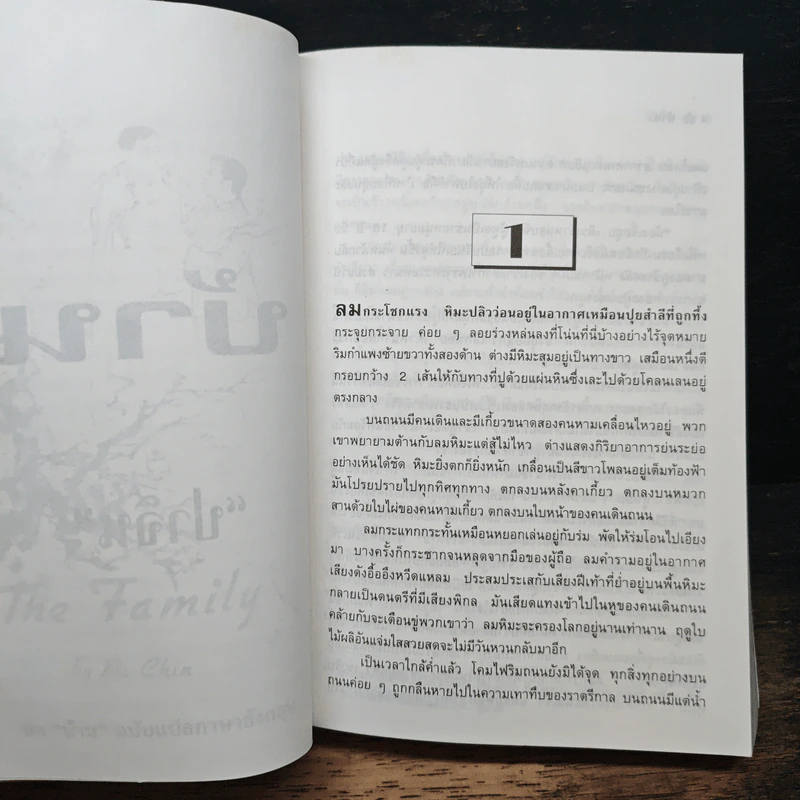 บ้าน
“ปาจิน”
The Family
by Pa Chin
1
ลมกระโชกแรง หิมะปลิวว่อนอยู่ในอากาศเหมือนปุยสำลีที่ถูกทึ้ง
กระจุยกระจาย ค่อย ๆ ลอยร่วงหล่นลงที่โน่นที่นี่บ้างอย่างไร้จุดหมาย
ริมกำแพงซ้ายขวาทั้งสองด้าน ต่างมีหิมะสุมอยู่เป็นทางขาว เสมือนหนึ่งตี
กรอบกว้าง 2 เส้นให้กับทางที่ปูด้วยแผ่นหินซึ่งเละไปด้วยโคลนเลนอยู่
ตรงกลาง
บนถนนมีคนเดินและมีเกี้ยวขนาดสองคนหามเคลื่อนไหวอยู่ พวก
เขาพยายามต้านกับลมหิมะแต่สู้ไม่ไหว ต่างแสดงกิริยาอาการย่นระย่อ
อย่างเห็นได้ชัด หิมะยิ่งตกก็ยิ่งหนัก เกลื่อนเป็นสีขาวโพลนอยู่เต็มท้องฟ้า
มันโปรยปรายไปทุกทิศทุกทาง ตกลงบนหลังคาเกี้ยว ตกลงบนหมวก
สานด้วยใบไผ่ของคนหามเกี้ยว ตกลงบนใบหน้าของคนเดินถนน
ลมกระแทกกระทั้นเหมือนหยอกเล่นอยู่กับร่ม พัดให้ร่มโอนไปเอียง
มา บางครั้งก็กระชากจนหลุดจากมือของผู้ถือ ลมคำรามอยู่ในอากาศ
เสียงดังอื้ออึงหวีดแหลม ประสมประเสกับเสียงฝีเท้าที่ย่ำอยู่บนพื้นหิมะ
กลายเป็นดนตรีที่มีเสียงพิกล มันเสียดแทงเข้าไปในหูของคนเดินถนน
คล้ายกับจะเตือนขู่พวกเขาว่า ลมหิมะจะครองโลกอยู่นานเท่านาน ฤดูใบ
ไม้ผลิอันแจ่มใสสวยสดจะไม่มีวันหวนกลับมาอีก
เป็นเวลาใกล้ค่ำแล้ว โคมไฟริมถนนยังมิได้จุด ทุกสิ่งทุกอย่างบน
ถนนค่อย ๆ ถูกกลืนหายไปในความเทาทึบของราตรีกาล บนถนนมีแต่น้ำ